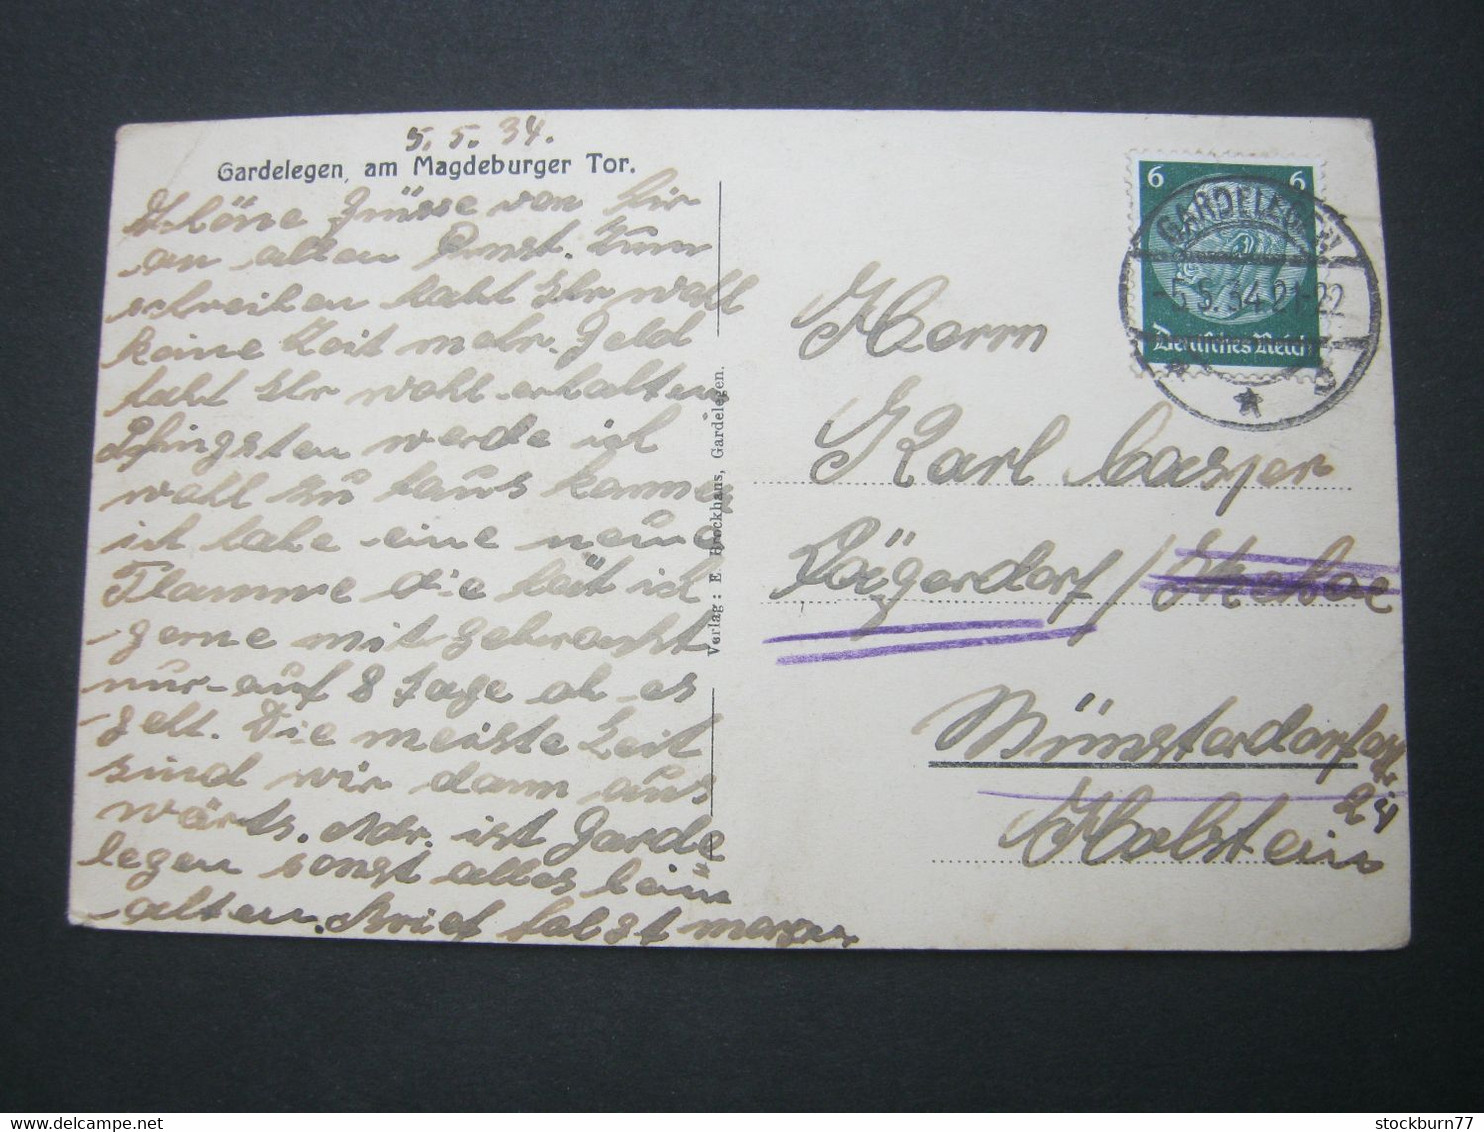 5. 5. 34.
Gardelegen, am Magdeburger Tor.
Schöne Grüsse von hir
an allen Ernst. Zum
schreiben habt Ihr wohl
keine Zeit mehr. Geld
habt Ihr wohl erhalten
Pfingsten werde ich
wohl zu haus kommen
ich habe eine neue
Flamme die hät ich
gerne mit gebracht
nur auf 8 Tage ob es
geht. Die meiste Zeit
sind wir dann aus
wärts. Adr. ist Garde
legen sonst alles beim
alten. Brief folgt morgen
Verlag: E. Brockhaus, Gardelegen.
6 6
Deutsches Reich
GARDELEGEN
-5.5.34.21-22
Herrn
Karl Casper
Lägerdorf / Itzehoe
Münsterdorf
Holstein
stockburn77